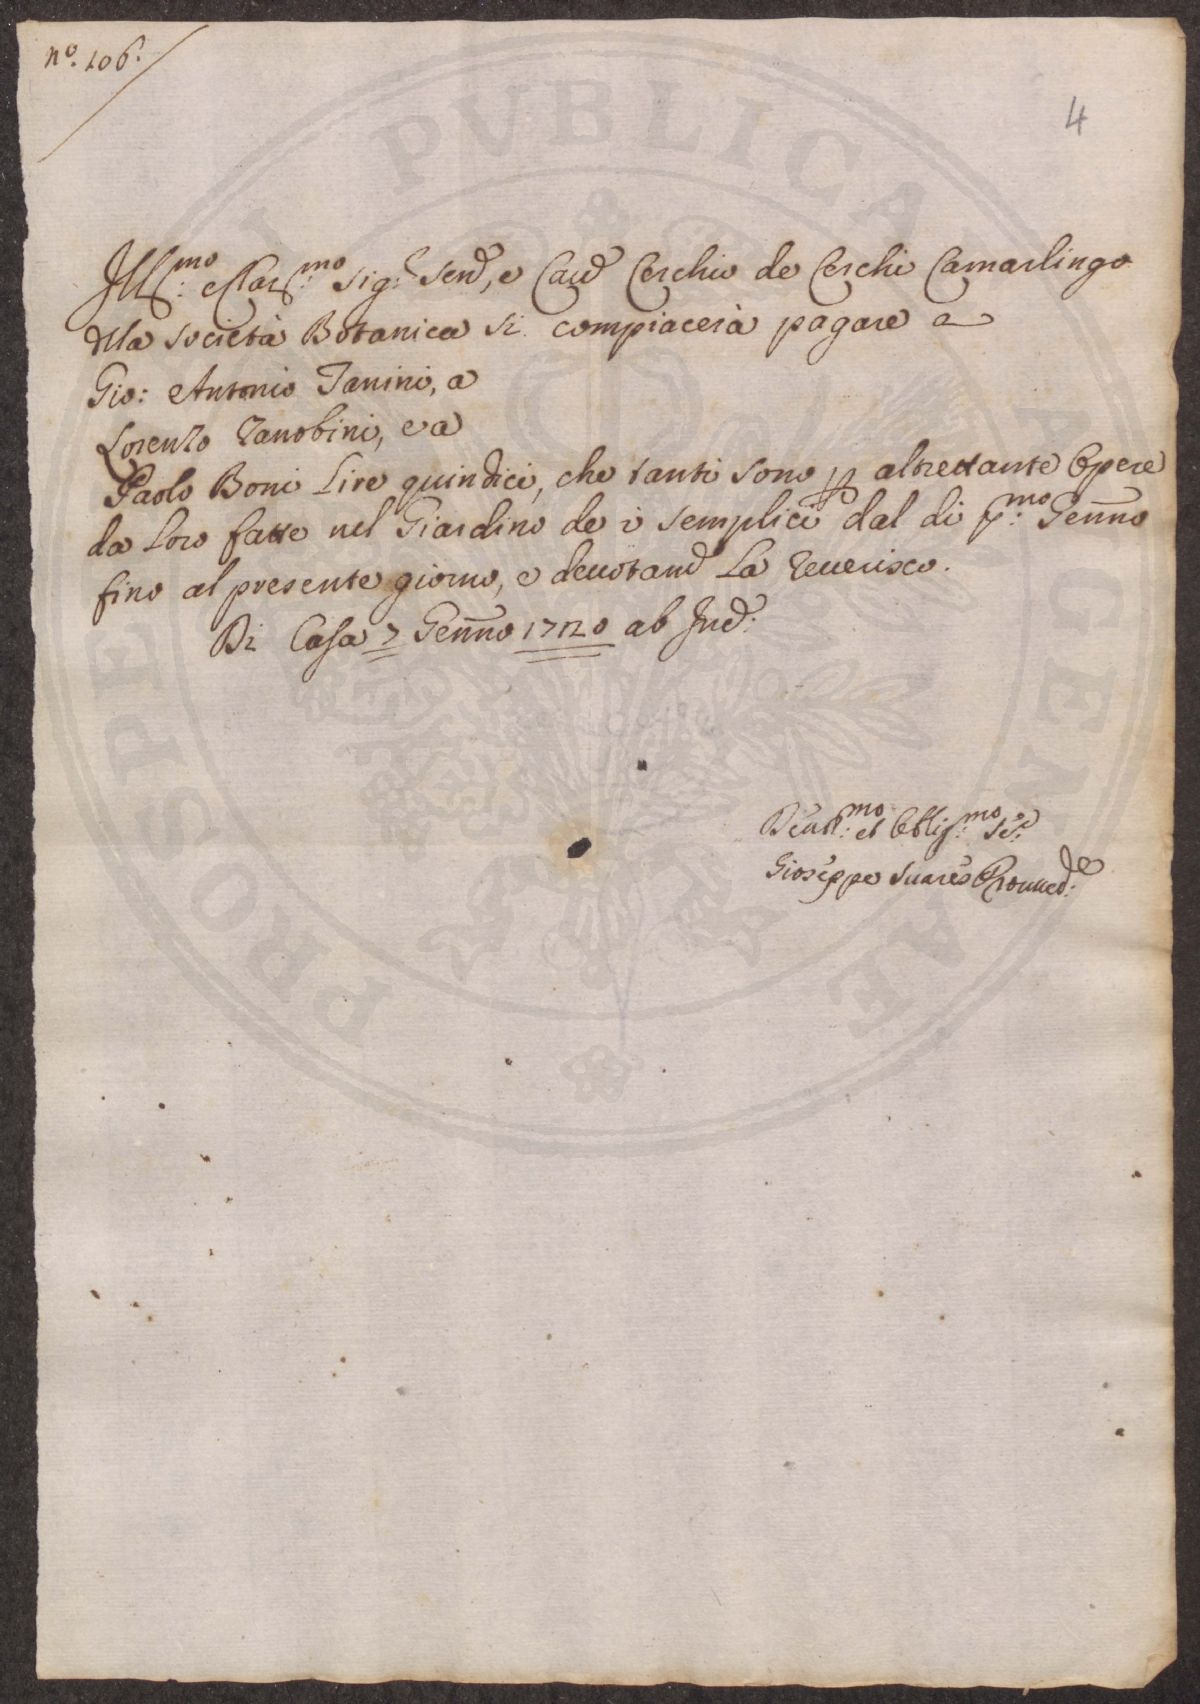 n.º 106.
4
Ill.mo e Clar.mo Sig.r Sen.e, e Cav.e Cerchio de Cerchi Camarlingo
della società Botanica si compiacerà pagare a
Gio: Antonio Tanini, a
Lorenzo Zanobini, e a
Paolo Boni Lire quindici, che tanti sono p altrettante Opere
da Loro fatte nel Giardino de i semplici dal di p.mo Genno
fino al presente giorno, e devotam.e La Reverisco.
Di Casa 7 Genno 1720 ab Inc.e
Devot.mo et Obblig.mo Se.re
Gioseppe Suares Provved.re
I PVBLICAE FLORENTIAE PROSPERITATI